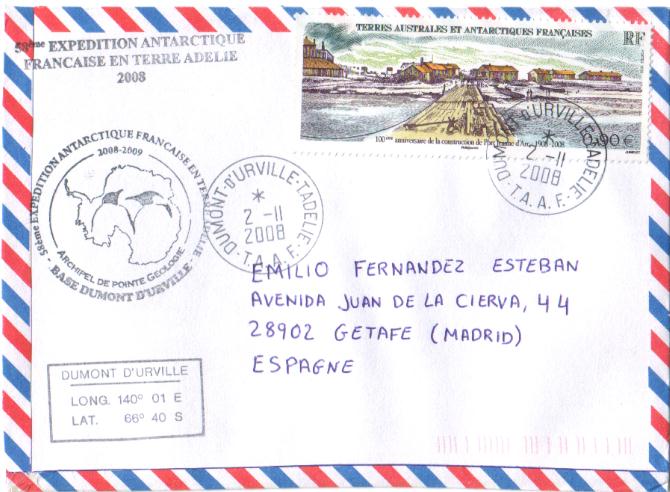 58ème EXPEDITION ANTARCTIQUE
FRANCAISE EN TERRE ADELIE
2008
TERRES AUSTRALES ET ANTARCTIQUES FRANÇAISES
RF
0,90 €
100ème anniversaire de la construction de Port Jeanne d'Arc 1908-2008
58ème EXPEDITION ANTARCTIQUE FRANCAISE EN TERRE ADELIE
2008-2009
ARCHIPEL DE POINTE GEOLOGIE
- BASE DUMONT D'URVILLE -
DUMONT-D'URVILLE-T.ADELIE
*
2 -11
2008
·T.A.A.F.·
DUMONT-D'URVILLE-T.ADELIE
*
2 -11
2008
·T.A.A.F.·
EMILIO FERNANDEZ ESTEBAN
AVENIDA JUAN DE LA CIERVA, 44
28902 GETAFE (MADRID)
ESPAGNE
DUMONT D'URVILLE
LONG. 140° 01 E
LAT. 66° 40 S